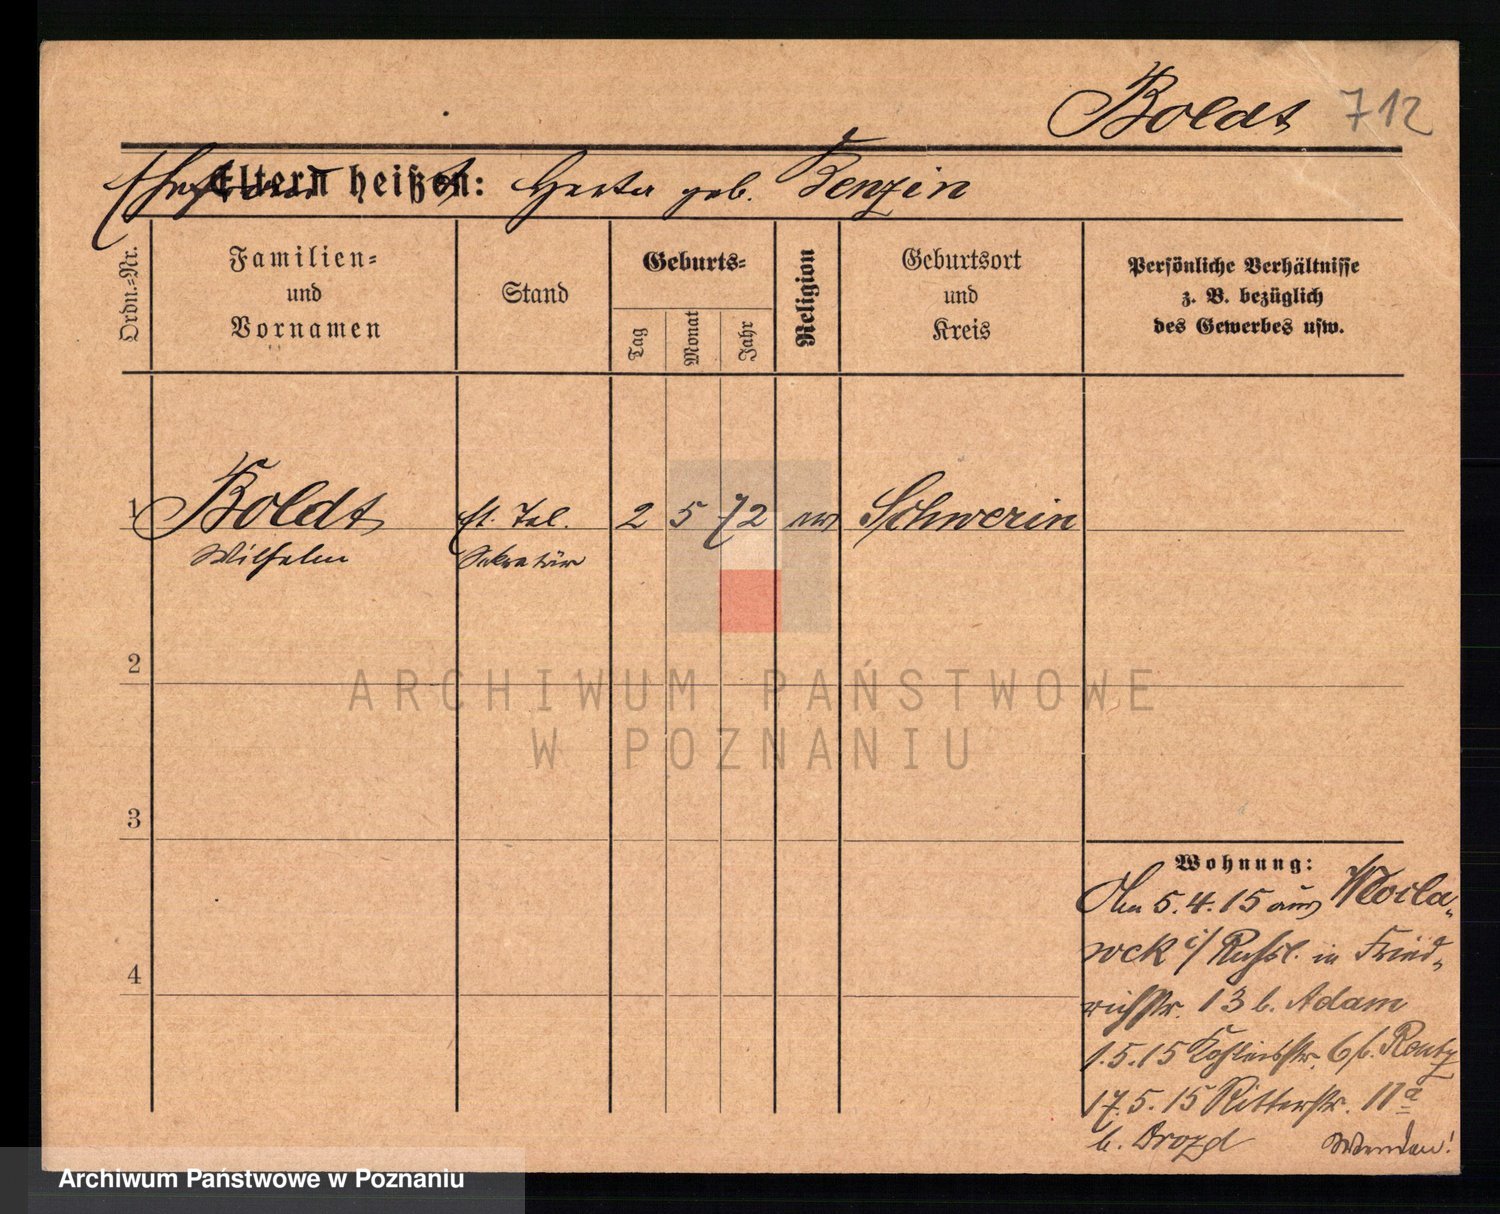 Boldt 712
Eltern heißen: Herta geb. Benzin
Ordn.=Nr.
Familien=
und
Vornamen
Stand
Geburts=
Tag
Monat
Jahr
Religion
Geburtsort
und
Kreis
Persönliche Verhältnisse
z. B. bezüglich
des Gewerbes usw.
1 Boldt Tel. 2 5 72 ev Schwerin
Wilhelm Sekretär
2
3
4
Wohnung:
5.4.15 aus Wocla-
wek i/ Russl. in Fried-
richstr. 13 b. Adam
1.5.15 6 b.
17.5.15 Ritterstr. 11a
b. Drozd Wenden!
ARCHIWUM PAŃSTWOWE
W POZNANIU
Archiwum Państwowe w Poznaniu